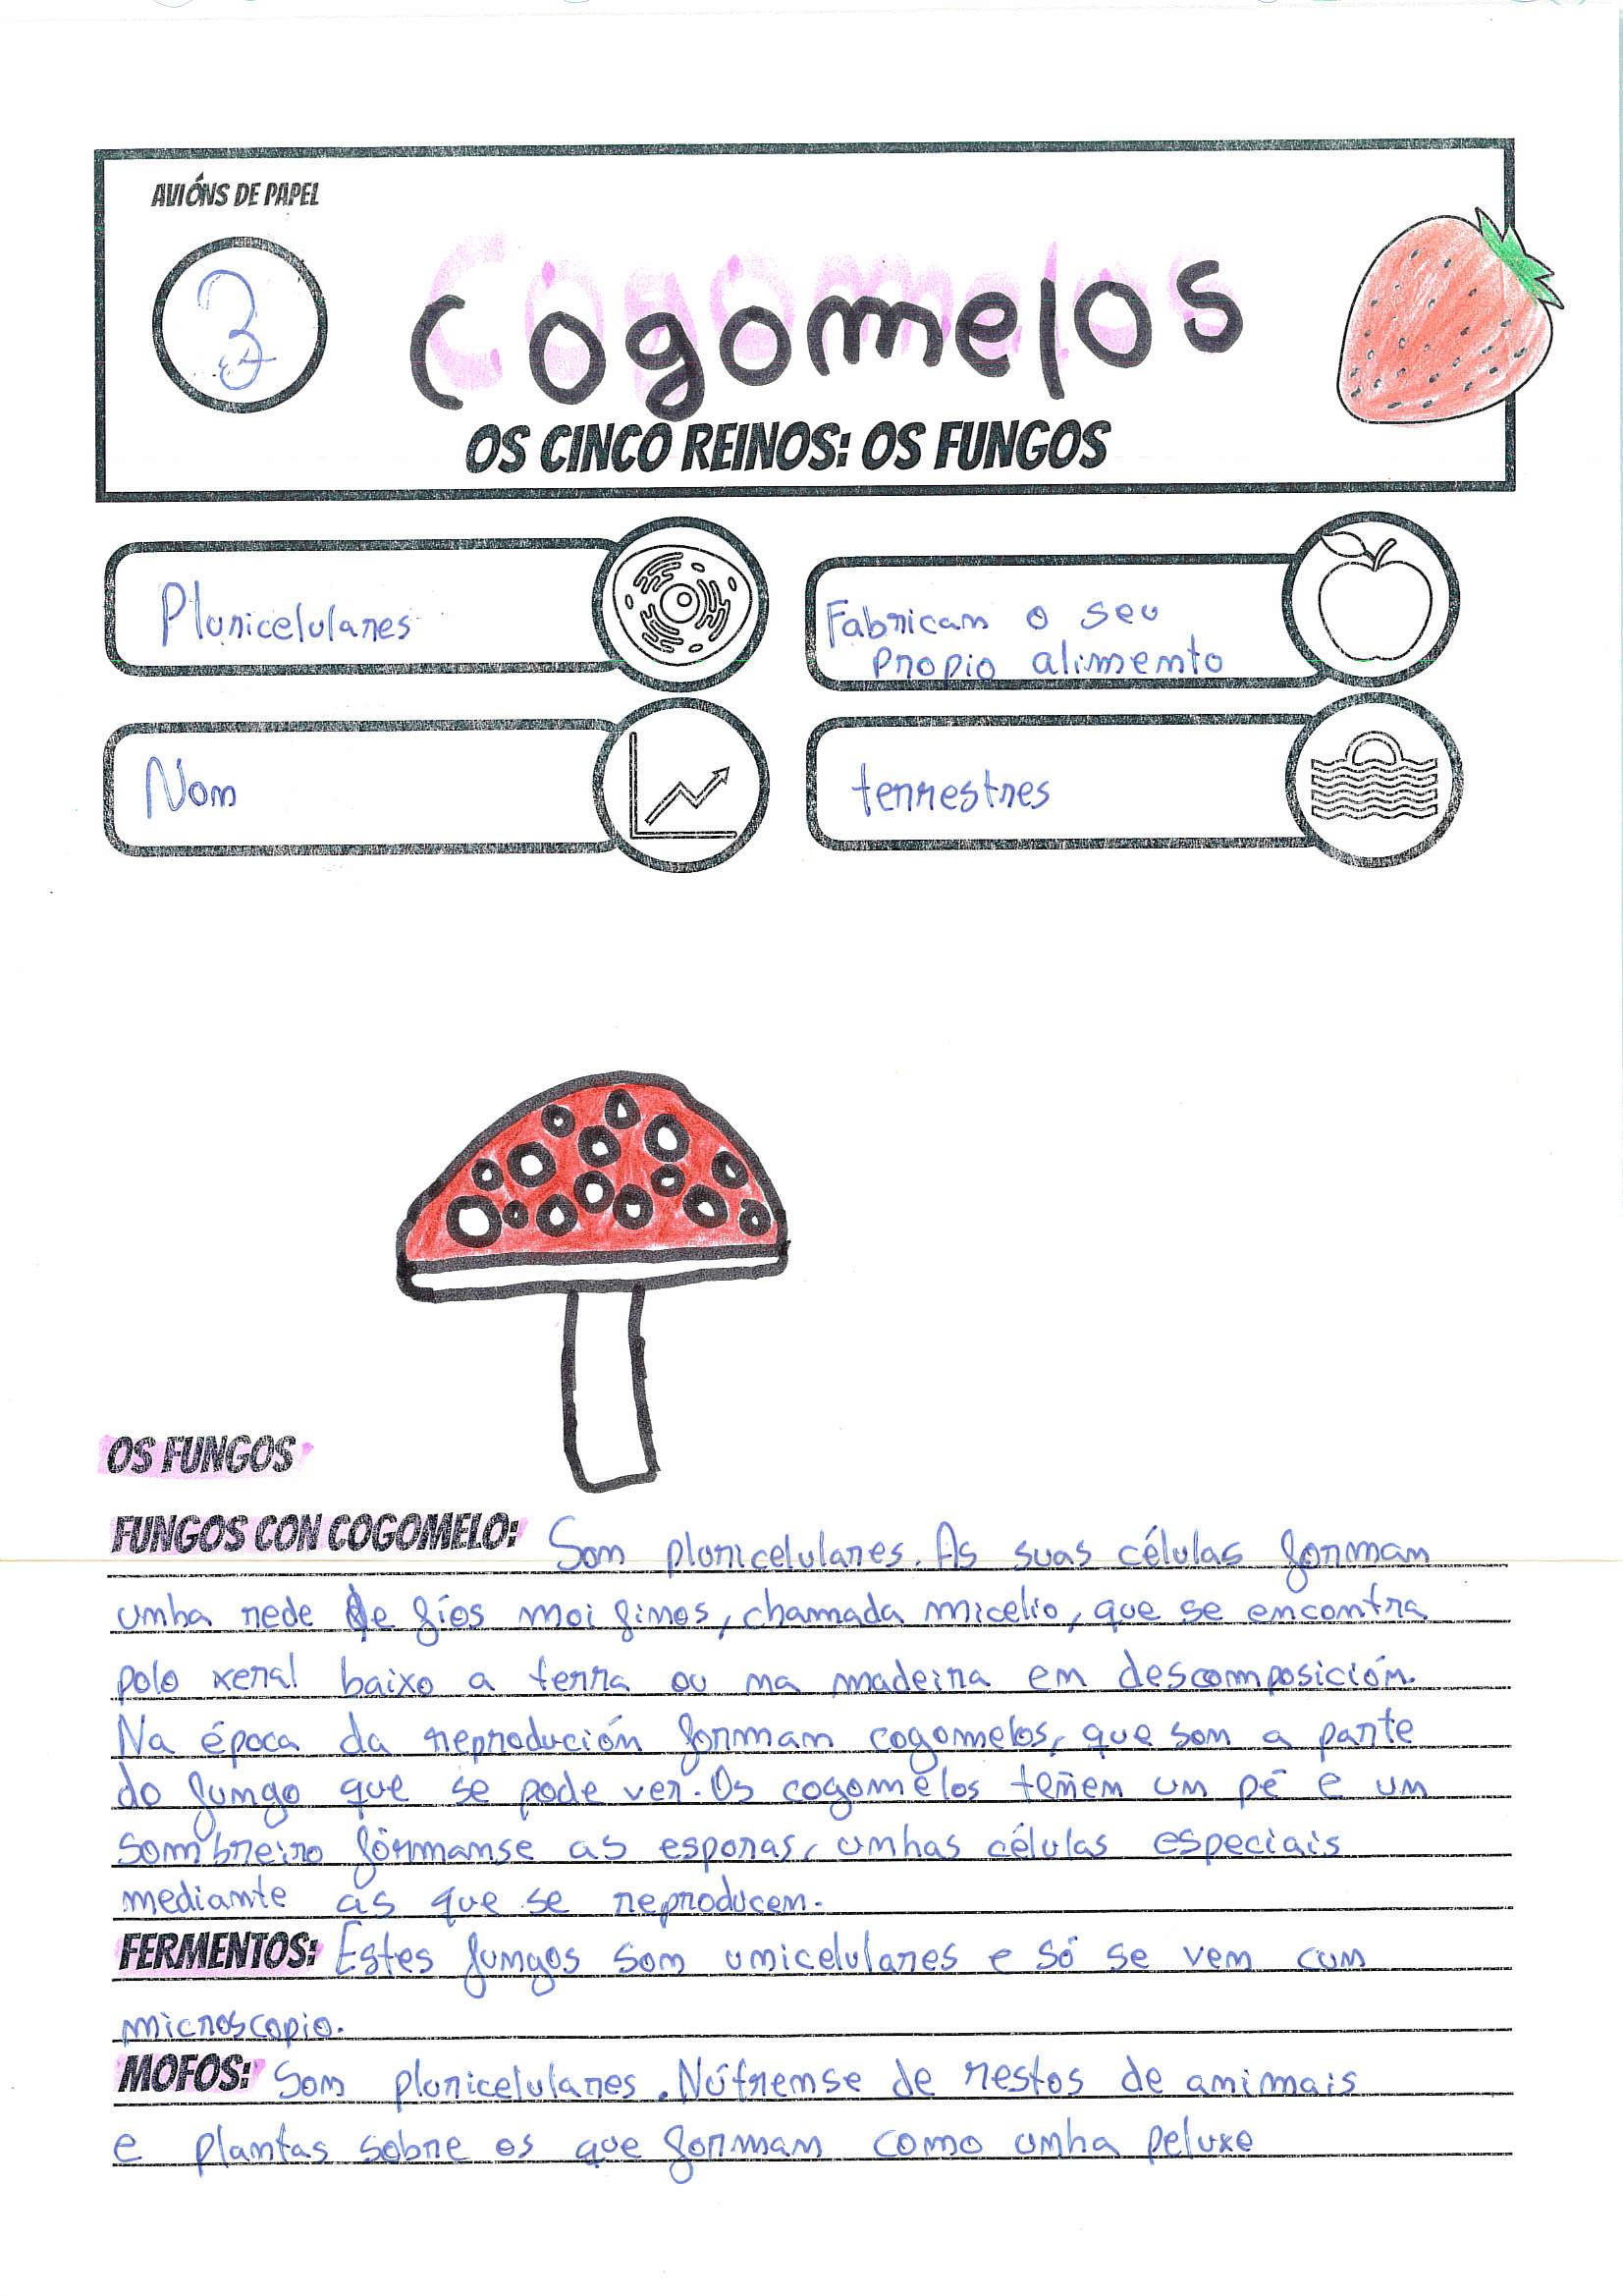 AVIÓNS DE PAPEL
3
Cogomelos
OS CINCO REINOS: OS FUNGOS
Pluricelulares
Fabrican o seu
propio alimento
Non
terrestres
OS FUNGOS
FUNGOS CON COGOMELO: Son pluricelulares. As suas células forman
unha rede de fíos moi finos, chamada micelio, que se encontra
polo xeral baixo a terra ou na madeira en descomposición.
Na época da reprodución forman cogomelos, que son a parte
do fungo que se pode ver. Os cogomelos teñen un pé e un
sombreiro fórmanse as esporas, unhas células especiais
mediante as que se reproducen.
FERMENTOS: Estes fungos son unicelulares e só se ven cun
microscopio.
MOFOS: Son pluricelulares. Nútrense de restos de animais
e plantas sobre os que forman como unha peluxe